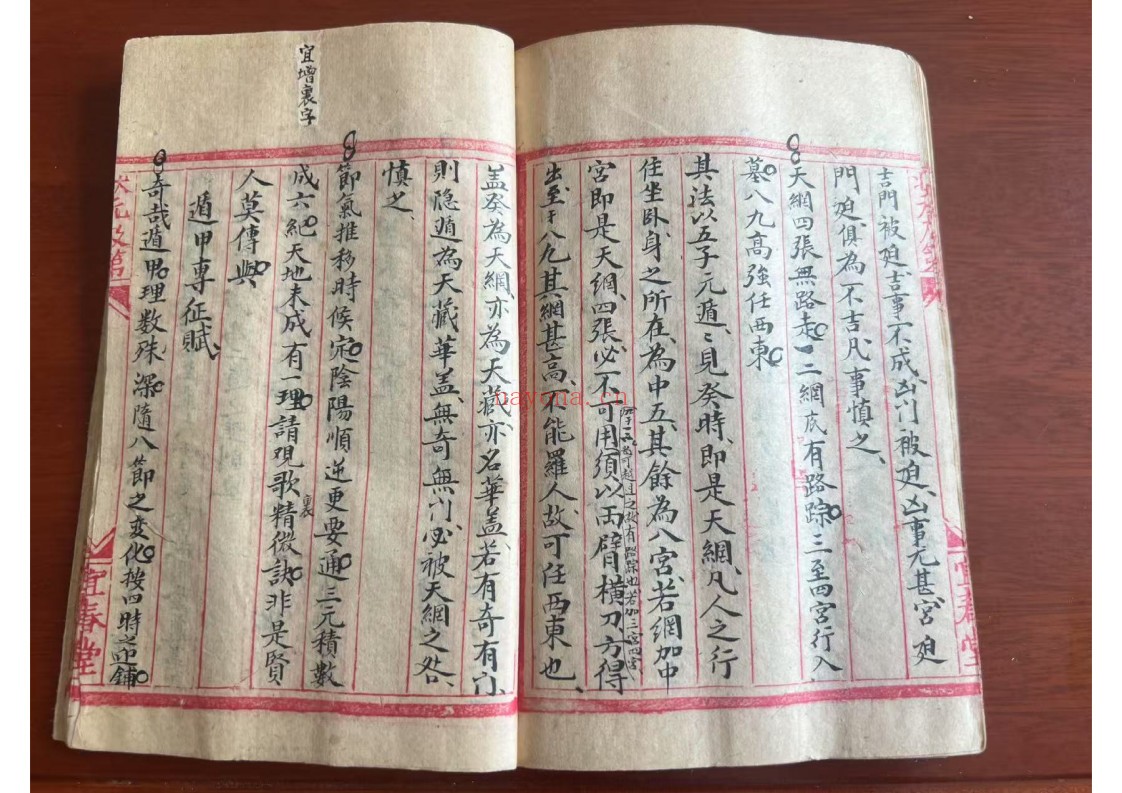 吉門被廹吉事不成、凶门被廹、凶事尤甚、宮廹
門廹、俱為不吉、凡事慎之、
天網四張無路走 一二網底有路踪 三至四宮行入
墓 八九高強任西東
其法以五子元遁、遁見癸時、即是天網、凡人之行
住坐臥、身之所在、為中五、其餘為八宮、若網加中
宮即是天網、四張、必不可用、須以兩臂橫刀、方得
故有路踪也若加三宮四宮
出、至于八九、其網甚高、不能羅人、故可任西東也、
盖癸為天網、亦為天藏、亦名華盖、若有奇有门、
則隐遁為天藏華盖、無奇無门、必被天網之咎、
慎之、
宜增裏字
節氣推移時候定 陰陽順逆更要通 三元積數
成六紀 天地未成有一理 請覌歌裏精微訣 非是賢
人莫傳與
遁甲專征賦、
奇哉遁甲 理数殊深 隨八節之变化 按四時之
宜春堂
宜春堂
bayona.cn